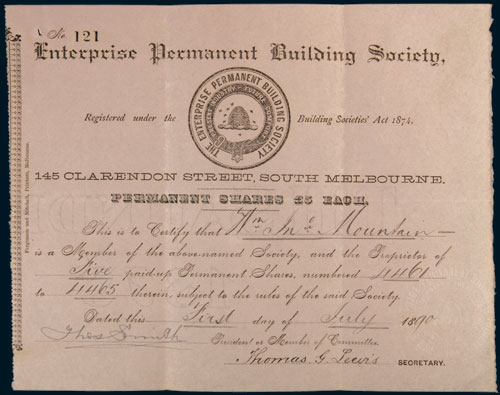 No 121
Enterprise Permanent Building Society,
THE ENTERPRISE PERMANENT BUILDING SOCIETY
INDUSTRY
Registered under the Building Societies' Act 1874.
145 CLARENDON STREET, SOUTH MELBOURNE.
PERMANENT SHARES £5 EACH.
This is to Certify that Wm Jno Mountain
is a Member of the above-named Society, and the Proprietor of
Five paid-up Permanent Shares, numbered 4461
to 4465 therein, subject to the rules of the said Society.
Dated this First day of July 1890
Thos Smith
President or Member of Committee.
Thomas G. Lewis SECRETARY.
Fergusson and Mitchell, Printers, Melbourne.